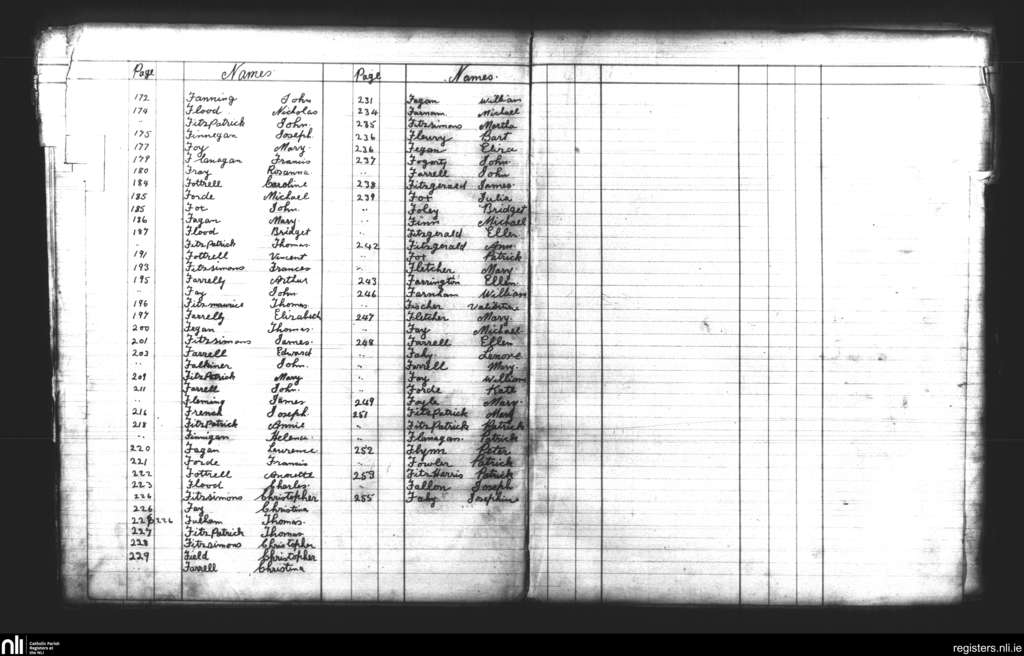 Page Names
172 Fanning John
174 Flood Nicholas
" FitzPatrick John
175 Finnegan Joseph
177 Foy Mary
179 Flanagan Francis
180 Fray Rosanna
184 Fottrell Caroline
185 Forde Michael
185 Fox John
186 Fagan Mary
187 Flood Bridget
" FitzPatrick Thomas
191 Fottrell Vincent
193 Fitzsimons Frances
195 Farrelly Arthur
" Fay John
196 Fitzmaurice Thomas
197 Farrelly Elizabeth
200 Fegan Thomas
201 Fitzsimons James
203 Farrell Edward
" Falkiner John
209 FitzPatrick Mary
211 Farrell John
" Fleming James
216 French Joseph
218 FitzPatrick Annie
" Finnigan Helena
220 Fagan Lawrence
221 Forde Francis
222 Fottrell Annette
223 Flood Charles
226 Fitzsimons Christopher
226 Fay Christina
226 Fullam Thomas
227 FitzPatrick Thomas
228 Fitzsimons Christopher
229 Field Christopher
" Farrell Christina
Page Names
231 Fagan William
234 Farnam Michael
235 Fitzsimons Martha
236 Fleury Bart
236 Fegan Eliza
237 Fogarty John
" Farrell John
238 Fitzgerald James
239 Fox Julia
" Foley Bridget
" Finn Michael
" Fitzgerald Ellen
242 Fitzgerald Ann
" Fox Patrick
" Fletcher Mary
243 Farrington Ellen
246 Farnham William
" Fischer Valentine
247 Fletcher Mary
" Fay Michael
248 Farrell Ellen
" Fahy Lenore
" Farrell Mary
" Foy William
" Forde Kate
249 Foyle Mary
251 FitzPatrick Mary
" FitzPatrick Patrick
" Flanagan Patrick
252 Flynn Peter
" Fowler Patrick
253 FitzHarris Patrick
" Fallon Joseph
255 Fahy Josephine
nli Catholic Parish Registers at the NLI
registers.nli.ie